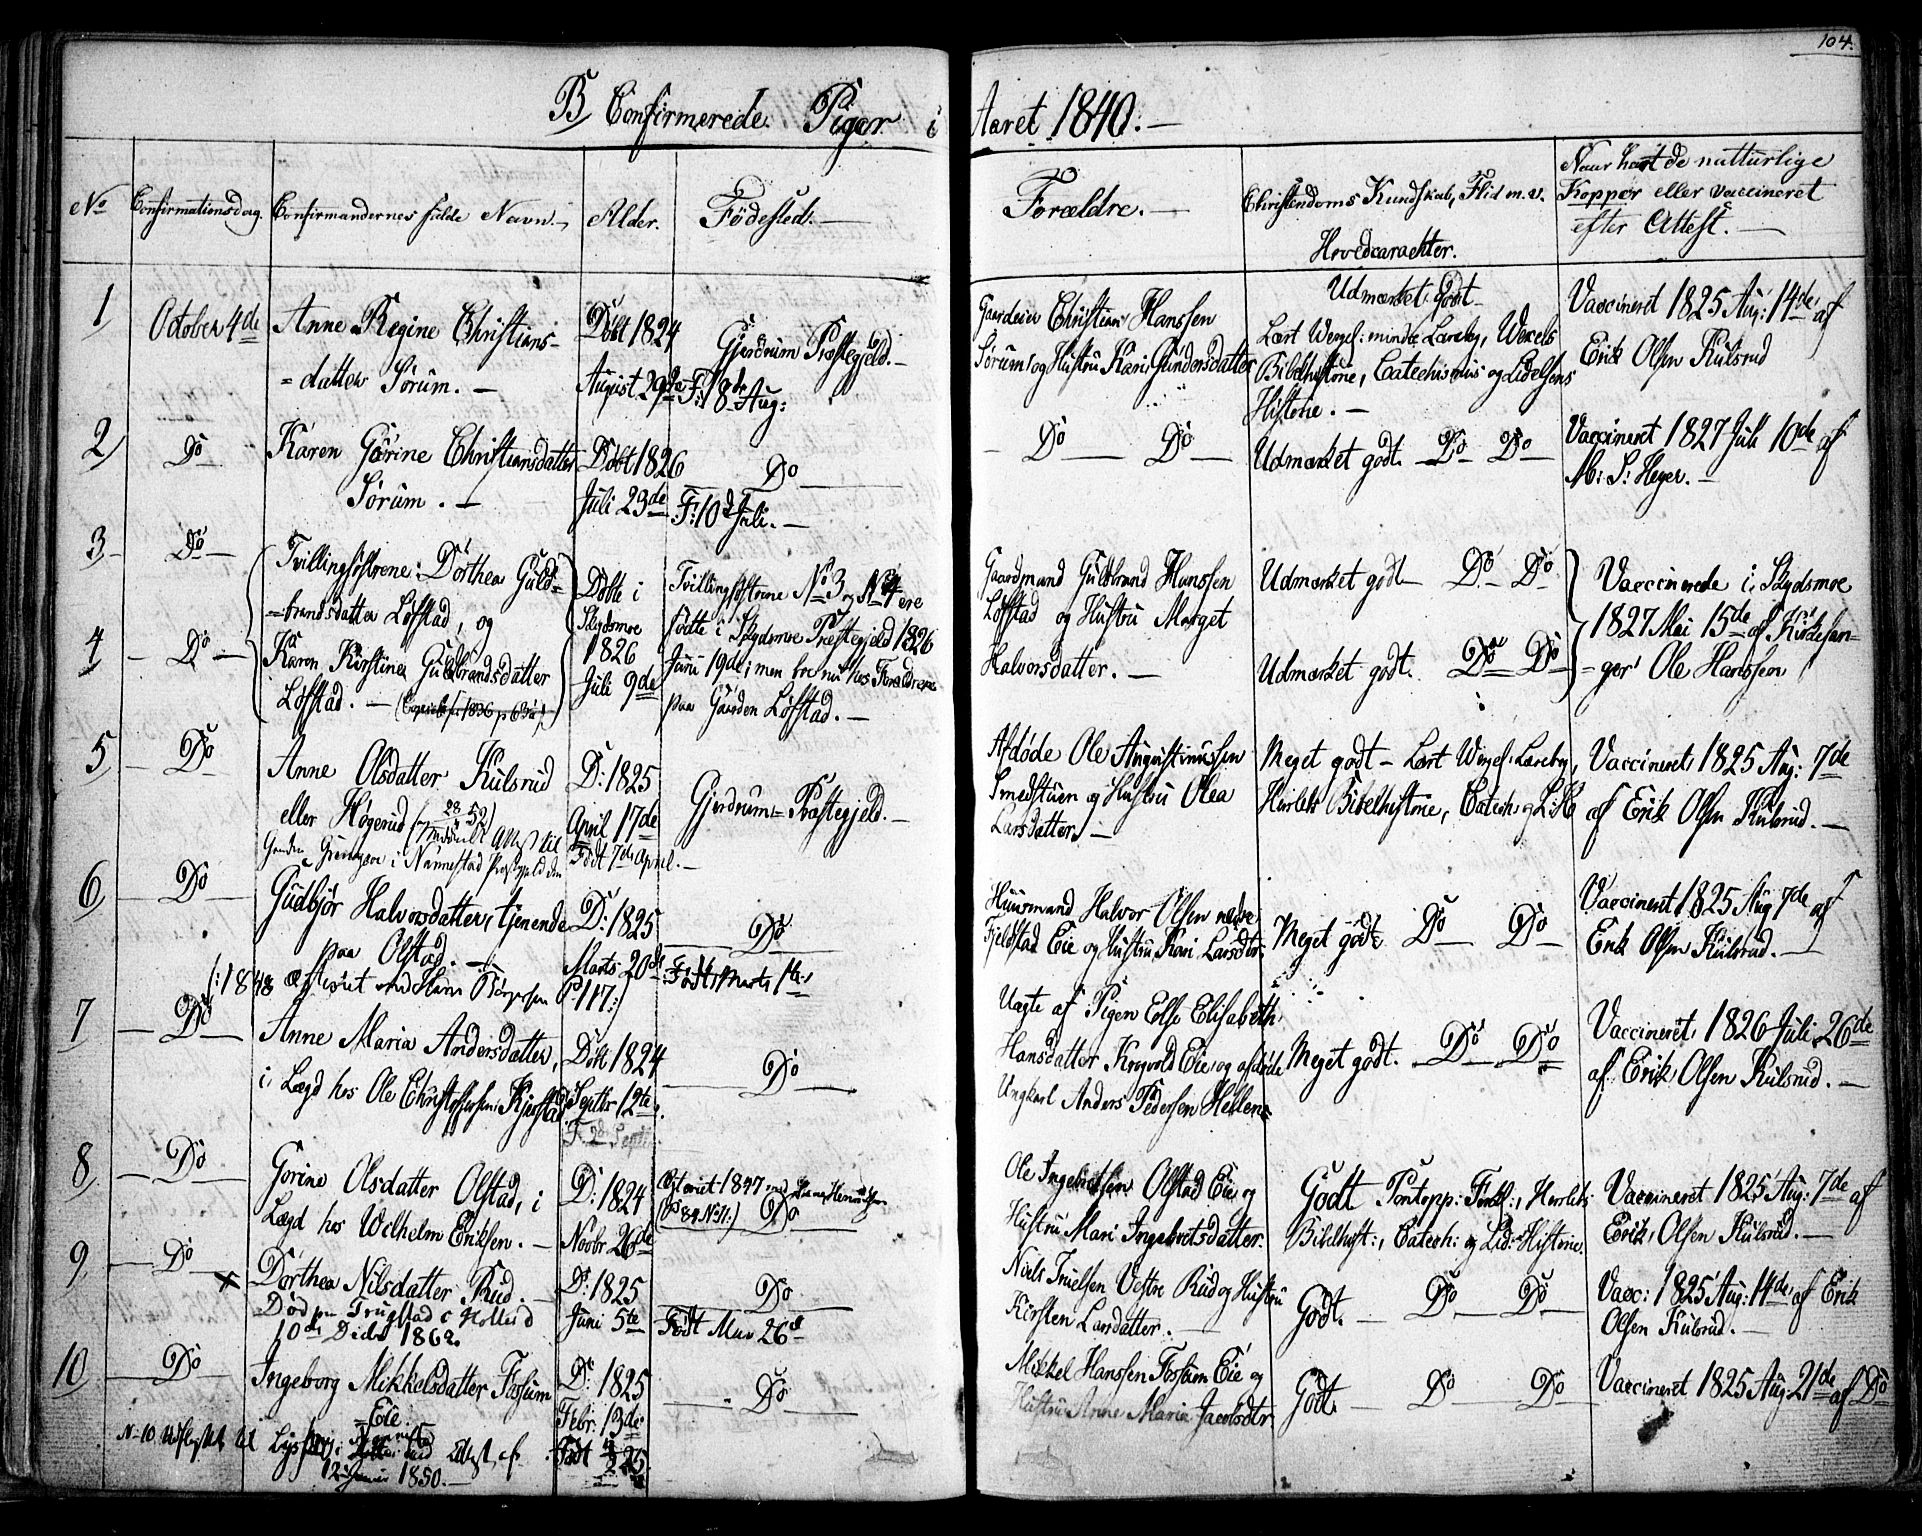 104.
B, Confirmerede Piger i Aaret 1840. —
No
Confirmationsdag.
Confirmandernes fulde Navn. —
Alder.
Fødested. —
Forældre. —
Christendoms Kundskab, Flid m. v.
Hovedcarachter.
Naar havt de natturlige
Kopper eller vaccineret
efter Attest. —
1
October 4de
Anne Regine Christians-
=datter Sørum. —
Døbt 1824
August 29de
Gjerdrum Præstegjeld. —
F: 18de Aug:
Gaardeier Christian Hanssen
Sørum og Hustru Kari Gundersdatter
Udmærket Godt
Lært Wexels: mindre Lærebog, Wexels
Bibelhistorie, Catechismus og Lidelsens
Historie. —
Vaccineret 1825 Aug: 14de af
Erik Olsen Kulsrud
2
Do
Karen Gørine Christiansdatter
Sørum. —
Døbt 1826
Juli 23de
Do
F: 10d Juli. —
Do Do
Udmærket godt. Do Do
Vaccineret 1827 Juli 10de af
M: S: Heyer. —
3
Do
Tvillingsøstrene: Dorthea Guld-
=brandsdatter Løfstad, og
Døbte i
Skydsmoe
1826
Juli 9de
Tvillingsøstrene No 3 og No 4 ere
fødte i Skydsmoe Præstegjeld 1826
Juni 19de; men boe nu hos Forældrene
paa Gaarden Løfstad. —
Gaardmand Guldbrand Hanssen
Løfstad og Hustru Marget
Halvorsdatter. —
Udmærket godt Do Do
Vaccinerede i Skydsmoe
1827 Mai 15de af Kirkesan-
=ger Ole Hanssen
4
Do
Karen Kirstine Guldbrandsdatter
Løfstad. —
Udmærket godt. Do Do
5
Do
Anne Olsdatter Kulsrud
eller Høgerud
28 52
Attest til
i Nannestad Præstegjeld den
D: 1825
April 17de
Født 7de April. —
Gjerdrum Præstegjeld. —
Afdøde Ole Augustinussen
Smedstuen og Hustru Olea
Larsdatter. —
Meget godt — Lært Wexels: Lærebog,
Herslebs Bibelhistorie, Catech: og L: H:
Vaccineret 1825 Aug: 7de
af Erik Olsen Kulsrud. —
6
Do
Gudbjør Halvorsdatter, tjenende
paa Olstad. —
(: 1848 ægteviet med Hans Børgersen P 117:)
D: 1825
Marts 20de
Do
Født Marts 1te
Huusmand Halvor Olsen nedre
Fjeldstad Eie og Hustru Kari Larsdtr.
Meget godt Do Do
Vaccineret 1825 Aug 7de af
Erik Olsen Kulsrud. —
7
Do
Anne Maria Andersdatter,
i Lægd hos Ole Christophersen Kjøstad
Døbt 1824
Septbr 12te
F. 2d Septbr
Do
Uægte af Pigen Else Elisabeth
Hansdatter Krogvold Eie og afdøde
Ungkarl Anders Pedersen Hellen
Meget godt. Do Do
Vaccineret 1826 Juli 26de
af Erik Olsen Kulsrud. —
8
Do
Gorine Olsdatter Olstad, i
Lægd hos Welhelm Eriksen. —
D: 1824
Novbr 26de
Egteviet 1847 med
(P 84 No 11:)
Do
Ole Ingebretsen Olstad Eie og
Hustru Mari Ingebretsdatter.
Godt Pontopp: Forkl:, Herslebs
Bibelhist:, Catech: og Lid: Historie.
Vaccineret 1825 Aug: 7de af
Erik Olsen Kulsrud. —
9
Do
Dorthea Nilsdatter Rud. —
Død paa Trugstad i Holter d
10de Decbr 1862.
D: 1825
Juni 5te
Do
Født Mai 26d
Niels Truelsen Vestre Rud og Hustru
Kirsten Larsdatter. —
Godt. Do Do
Vacc: 1825 Aug: 14de af Erik
Olsen Kulsrud. —
10
Do
Ingeborg Mikkelsdatter Fossum
=Eie.
D: 1825
Febr: 13de
Do
Mikkel Hanssen Fossum Eie og
Hustru Anne Maria Jacobsdtr
Godt. Do Do
Vaccineret 1825 Aug 21de af Do
No 10 Udflyttet til
1850. —